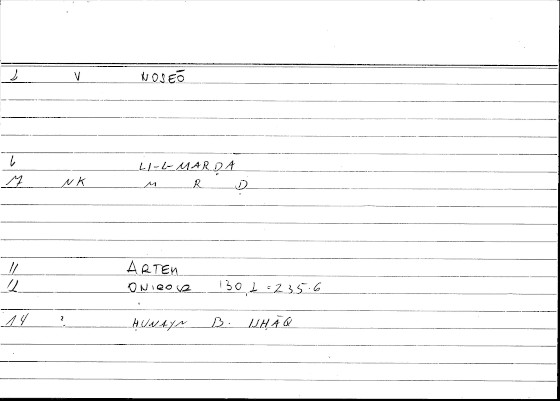 1 V NOSEŌ
6 LI-L-MARḌĀ
7 NK M R Ḍ
11 ARTEM
12 ONIROCR 130,1 = 235.6
14 ? ḤUNAYN B. ISḤĀQ